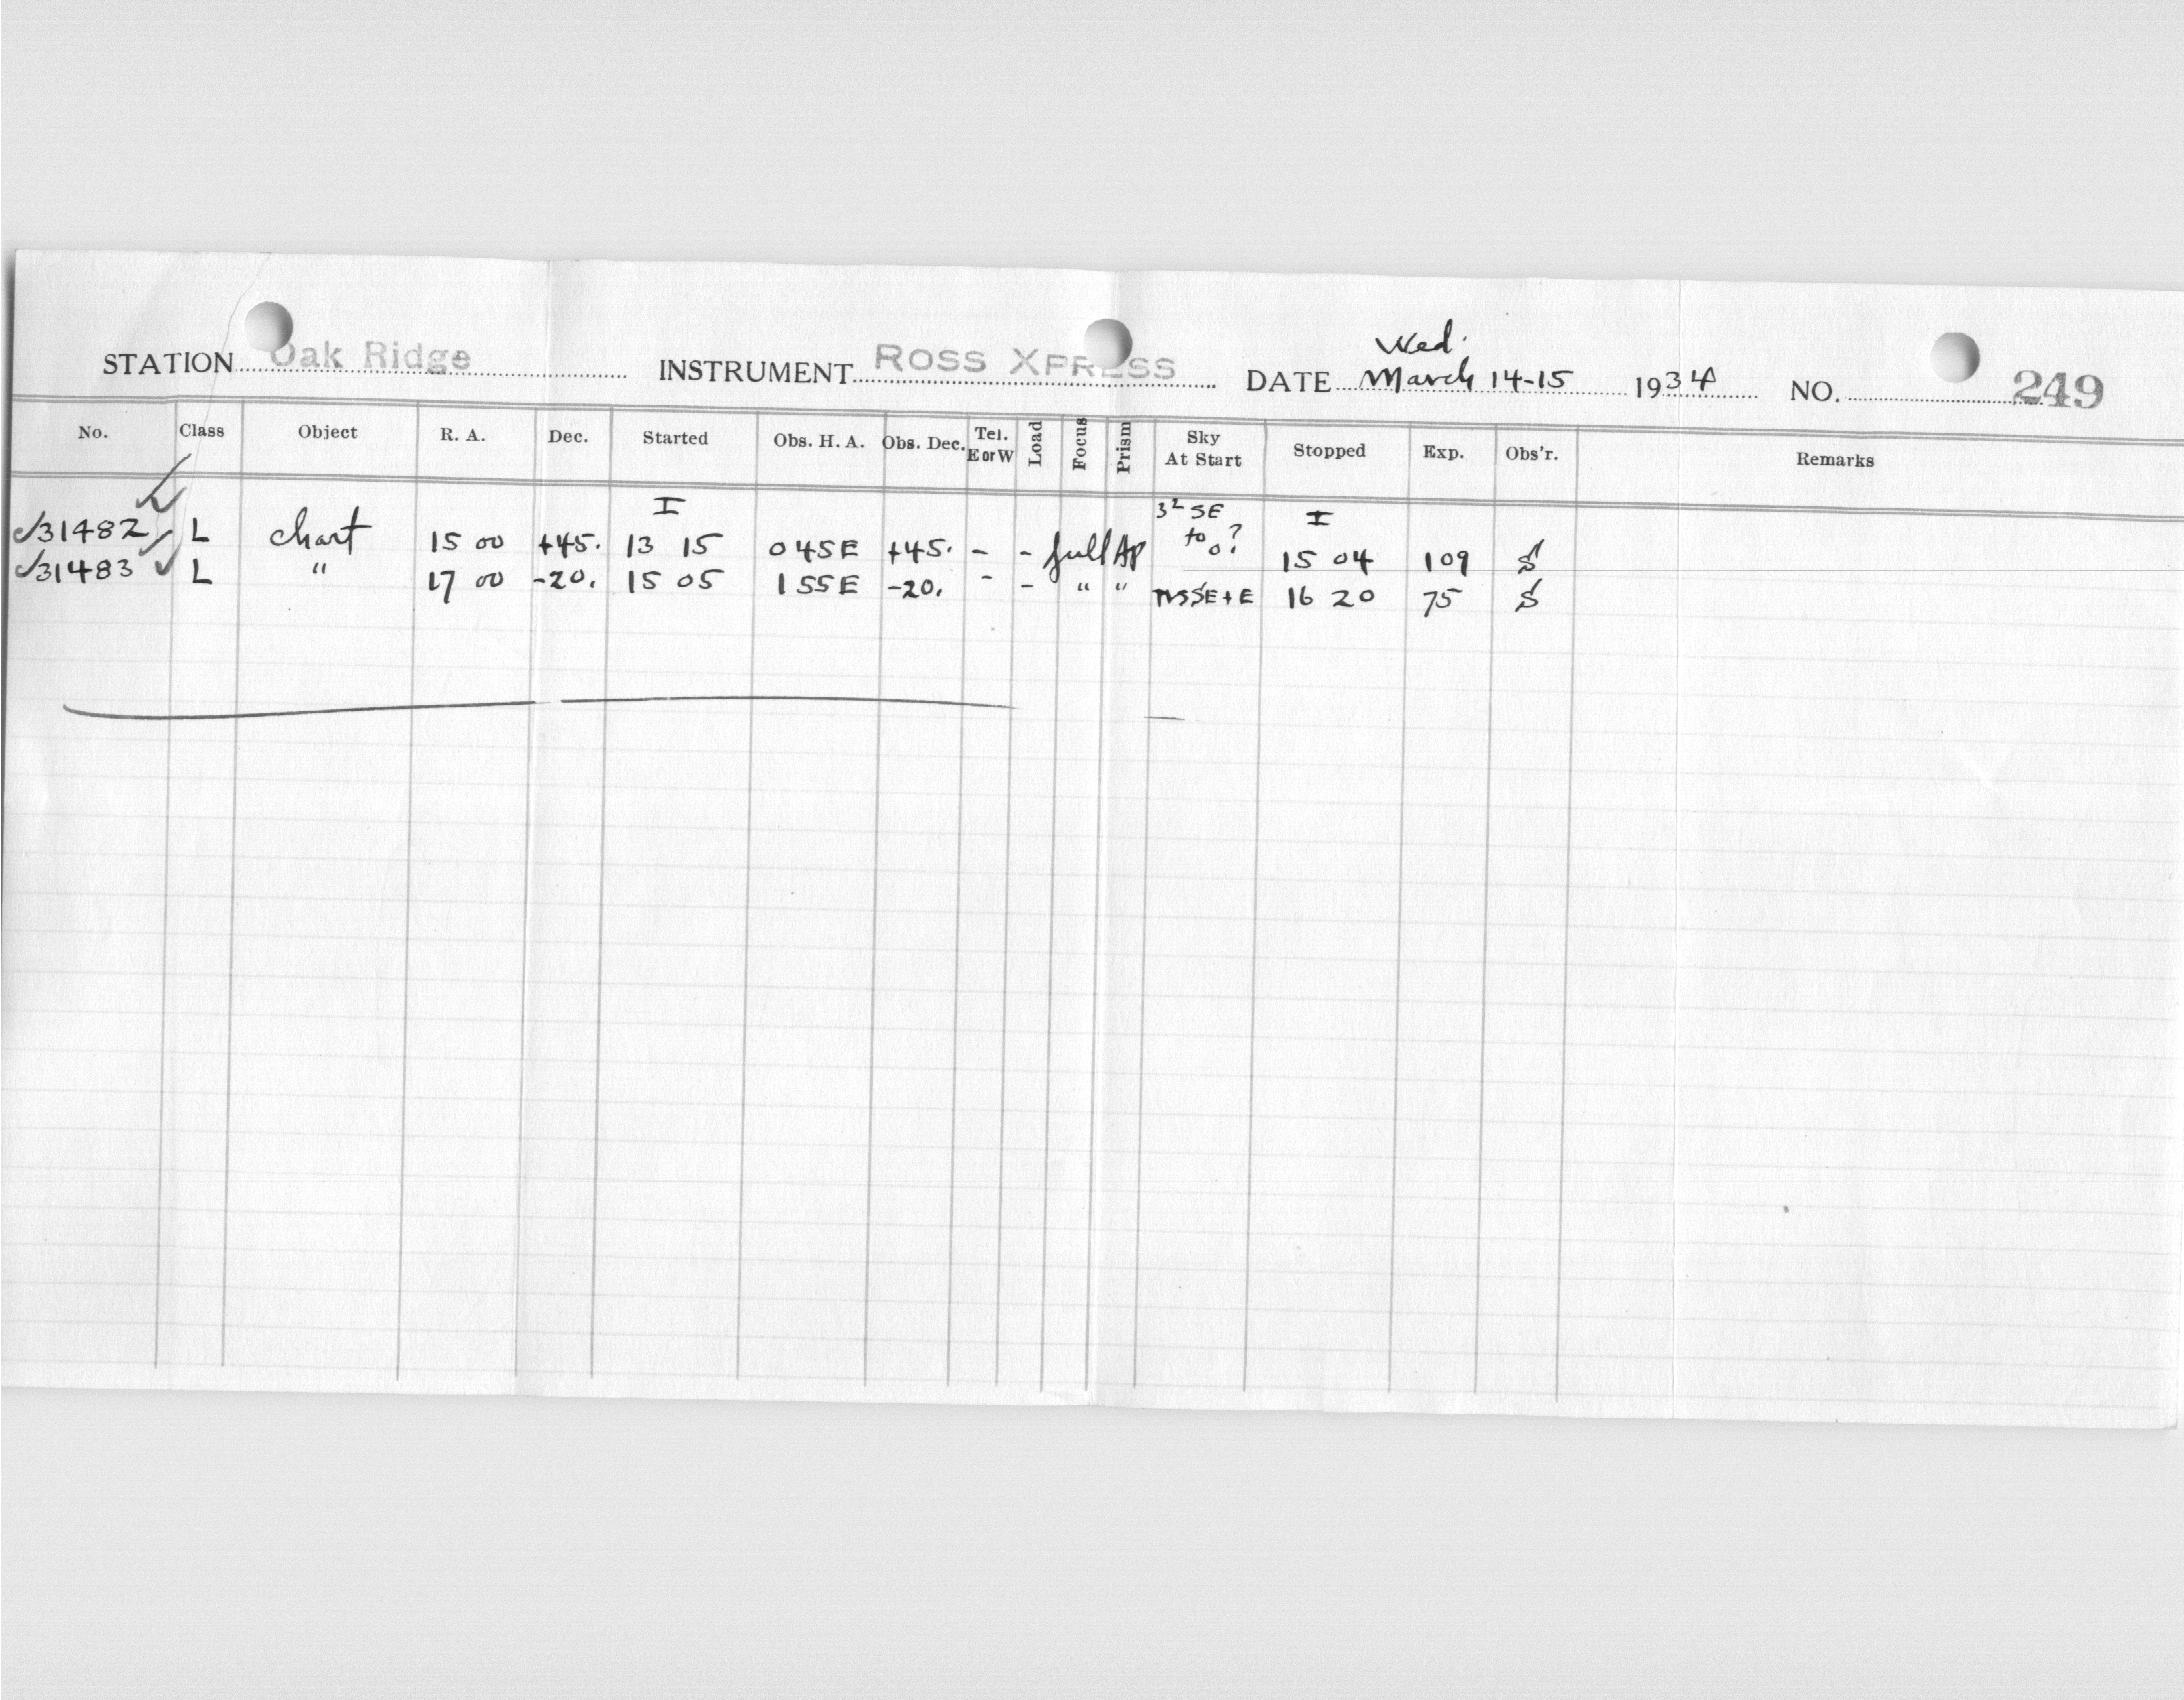 Wed.
STATION Oak Ridge INSTRUMENT ROSS XPRESS DATE March 14-15 1934 NO. 249
No. Class Object R. A. Dec. Started Obs. H. A. Obs. Dec. Tel. E or W Load Focus Prism Sky At Start Stopped Exp. Obs'r. Remarks
I 3² SE I
31482 L chart 15 00 +45. 13 15 0 45E +45. - - full Ap to 0? 15 04 109 S
31483 L " 17 00 -20. 15 05 1 55E -20. - - " " 16 20 75 S